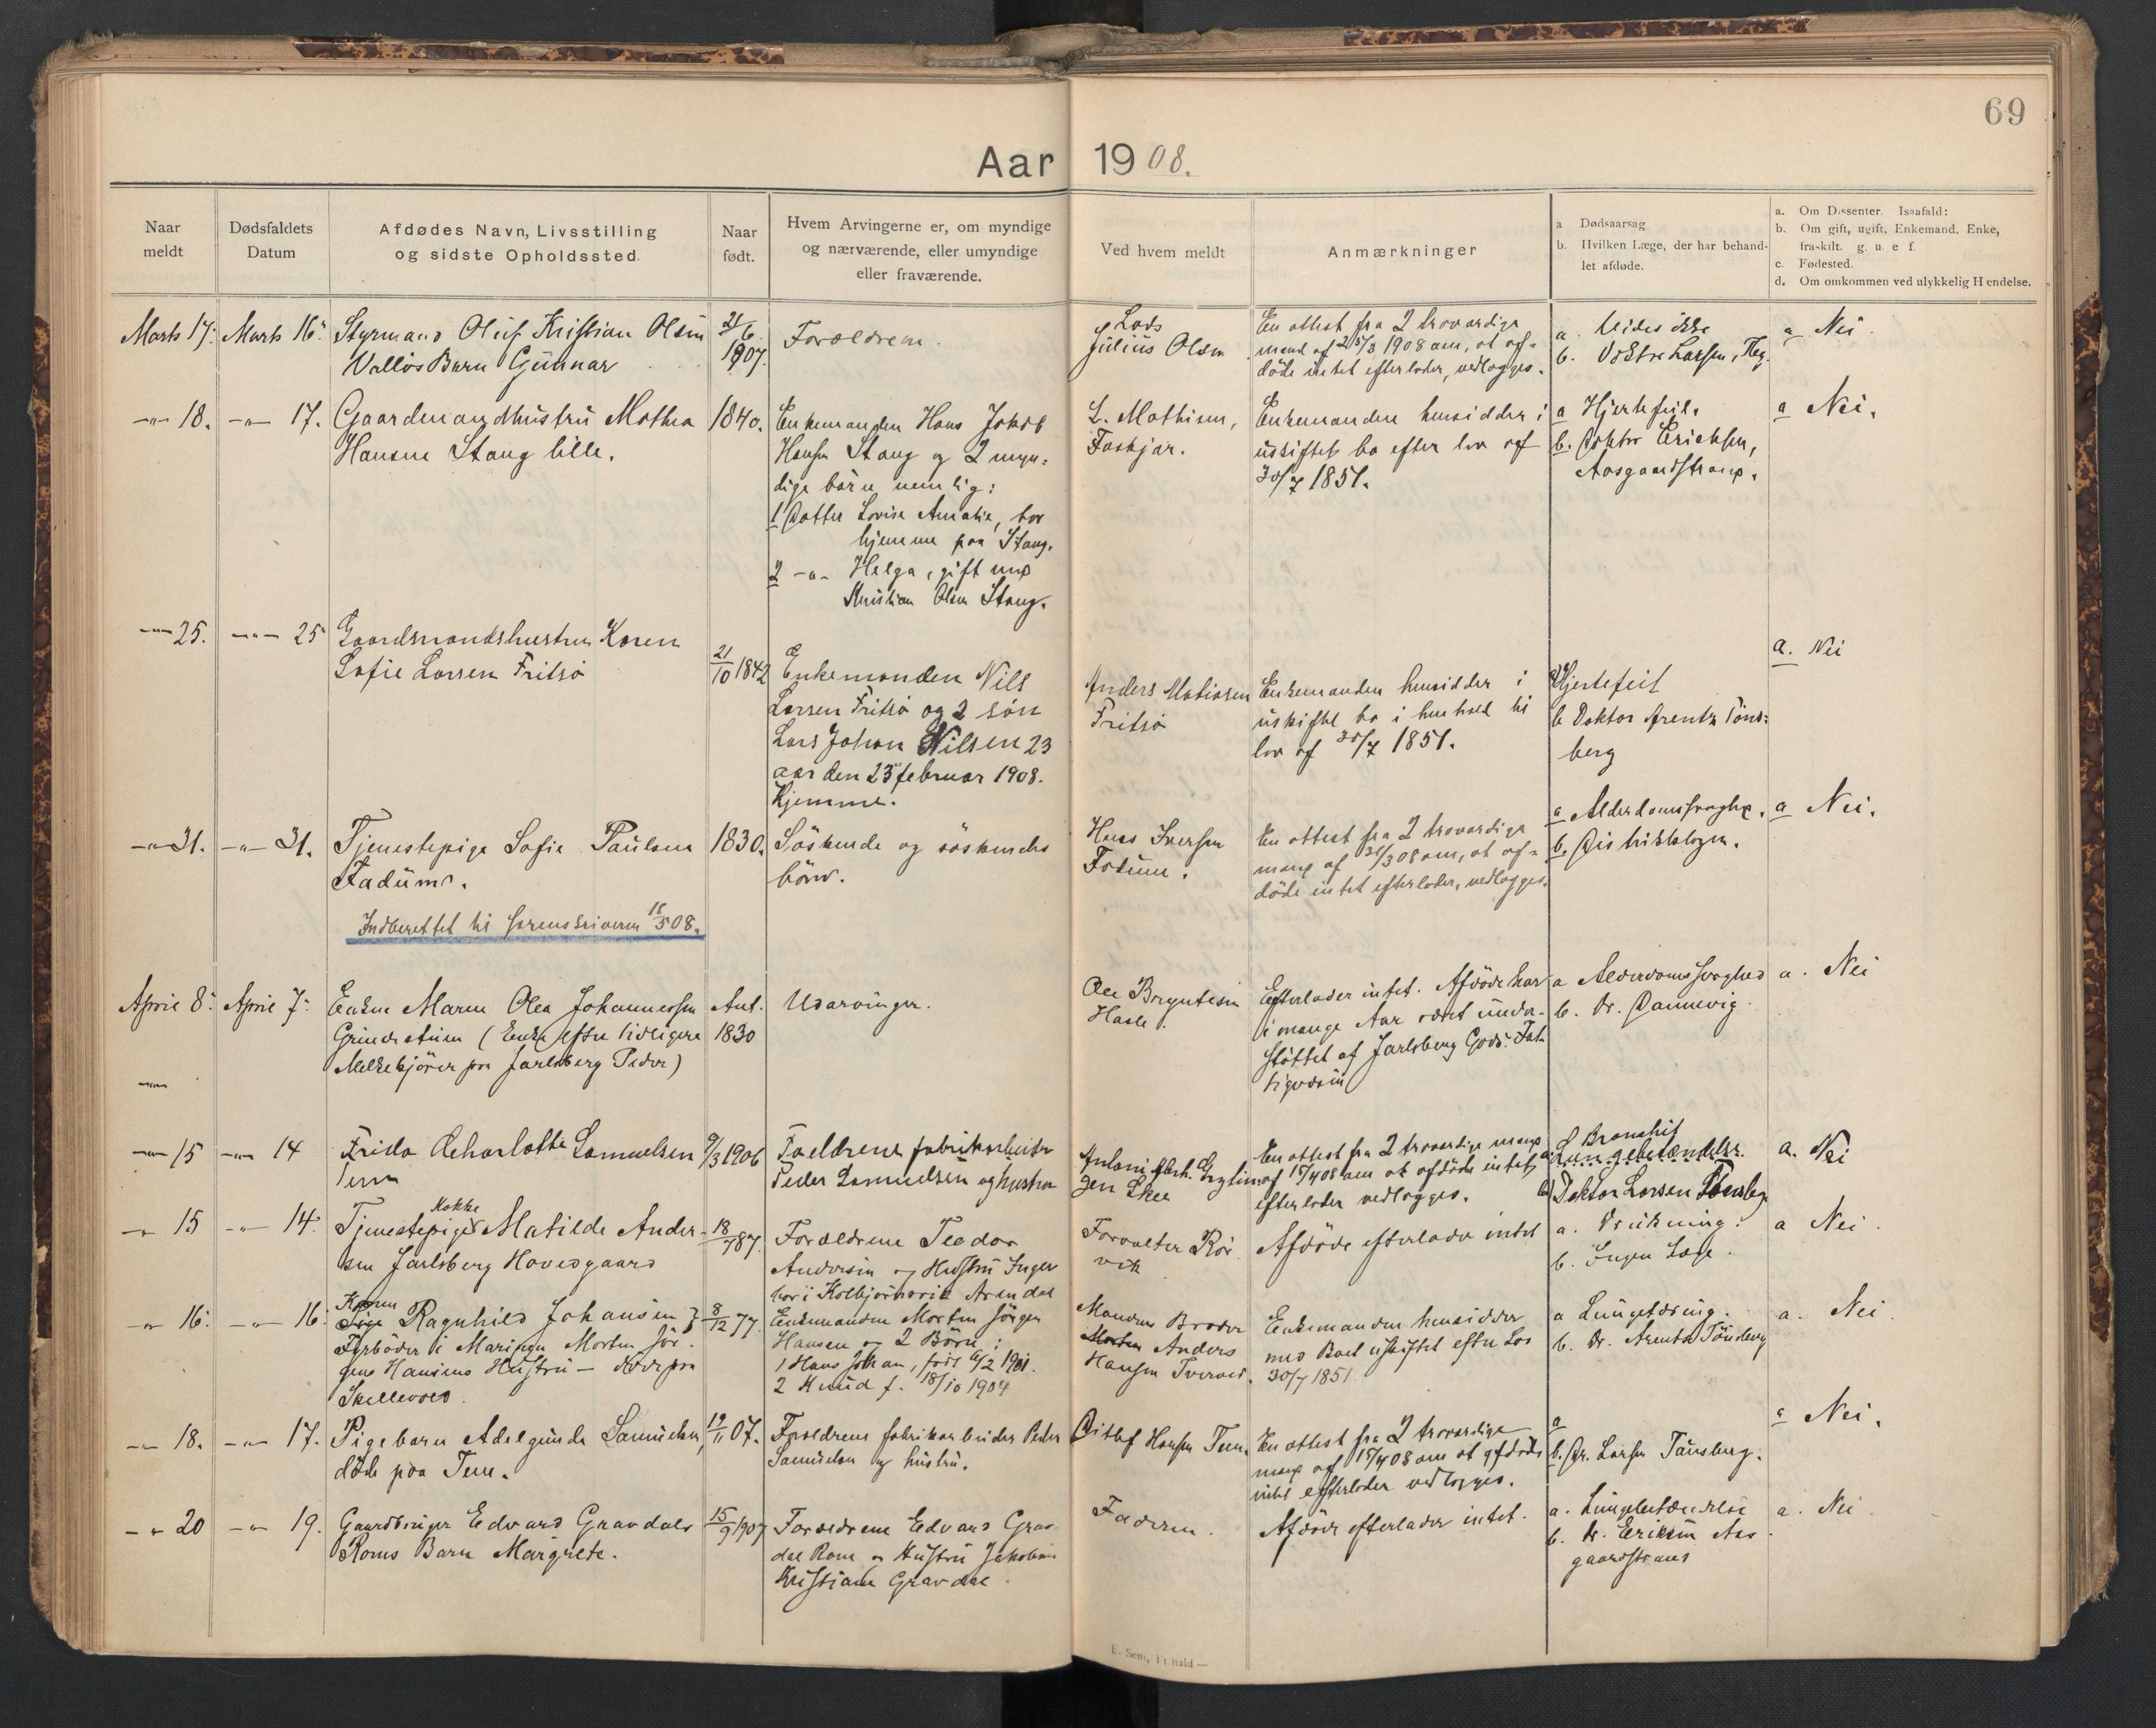 69
Aar 1908.
Naar meldt
Dødsfaldets Datum
Afdødes Navn, Livsstilling og sidste Opholdssted.
Naar født.
Hvem Arvingerne er, om myndige og nærværende, eller umyndige eller fraværende.
Ved hvem meldt
Anmærkninger
a Dødsaarsag
b. Hvilken Læge, der har behandlet afdøde.
a. Om Dissenter. Isaafald:
b. Om gift, ugift, Enkemand, Enke, fraskilt. g. u. e f.
c. Fødested.
d. Om omkommen ved ulykkelig Hendelse.
Marts 17. Marts 16.
Styrmand Oluf Kristian Olsen
Valløs Barn Gunnar
21/6 1907.
Forældrene.
Lods
Julius Olsen
En attest fra 2 troværdige
mænd af 25/3 1908 om, at af-
døde intet efterlader, vedlægges.
a. Vides ikke
b. Doktor Larsen, Tbg.
a Nei.
-"- 18. -"- 17.
Gaardmandhustru Mathea
Hansen Stang lille.
1840.
Enkemanden Hans Jakob
Hansen Stang og 2 myn-
dige børn nemlig:
1 Datter Lovise Amalie, bor
hjemme paa Stang.
2 -"- Helga, gift med
Kristian Olsen Stang.
L. Mathisen,
En­kemanden hensidder i
uskiftet bo efter lov af
30/7 1851.
a Hjertefeil.
b. Doktor Ericksen,
Aasgaardstrand.
a Nei.
-"- 25. -"- 25
Gaardmandshustru Karen
Sofie Larsen Fritsø
21/10 1842
Enkemanden Nils
Larsen Fritsø og 2 søn
Lars Johan Nilsen 23
aar den 23 februar 1908.
Hjemme.
Anders Matiasen
Fritsø
Enkemanden hensidder i
uskiftet bo i henhold til
lov af 30/7 1851.
a Hjertefeil
b Doktor Arentz Tøns-
berg
a. Nei
-"- 31. -"- 31.
Tjenestepige Sofie Paulsen
Fadum.
1830.
Søskende og søskendes
børn.
Hans Iversen
Fadum.
En attest fra 2 troværdige
mænd af 31/3 08 om, at af-
døde intet efterlader, vedlægges.
a Alderdomssvaghed.
b. Distriktslægen.
a Nei.
Indberettet til sorenskriveren 18/5 08.
April 8. April 7.
Enken Maren Olea Johannessen
Grindestuen (Enke efter tidligere
Melkekjører paa Jarlsberg Peder)
Ant.
1830
Udarvinger.
Ole Bryntesen
Hasle.
Efterlader intet. Afdøde har
i mange Aar været under-
støttet af Jarlsberg Gods. Fat-
tigvæsen
a Alderdomssvaghed
b. Dr. Dannevig.
a. Nei
-"-
-"- 15 -"- 14
Frida Charlotte Samuelsen
Tem
9/3 1906
Faeldrene fabrikarbeider
Peder Samuelsen og hustru
En attest fra 2 troværdige mænd
af 15/4 08 om at afdøde intet
efterlader vedlægges.
a Bronchit
Lungebetændelse.
b) Doktor Larsen Tønsberg
a. Nei
-"- 15 -"- 14.
Kokke
Tjenestepige Matilde Ander-
sen Jarlsberg Hovedgaard
18/7 87.
Forældrene Teodor
Andersen og Hustru Inger
bor i Kolbjørnsvik Arendal
Forvalter Rør
vik
Afdøde efterlader intet
a. Drukning.
b. Ingen Læge.
a Nei.
-"- 16. -"- 16.
Karen
Ragnhild Johansen
Fyrbøder i Marinen Morten Jør-
gens Hansens Hustru – døde paa
8/12 77.
Enkemanden Morten Jørgen
Hansen og 2 Børn:
1 Hans Johan, født 6/2 1901.
2 Knud f. 18/10 1904
Mandens Broder
Morten Anders
Hansen Tvered.
Enkemanden hensidder
med Boet uskiftet efter Lov
30/7 1851
a Lungetæring.
b. Dr. Arentz Tønsberg
a. Nei.
-"- 18. -"- 17.
Pigebarn Adelgunda Samuelsen,
døde paa Tem.
19/11 07.
Forældrene fabrikarbeider Peder
Samuelsen og hustru.
Ditlef Hansen Tem.
En attest fra 2 troværdige
mænd af 15/4 08 om at afdøde
intet efterlader vedlægges.
a
b. Dr. Larsen Tønsberg.
a Nei.
-"- 20 -"- 19.
Gaardbruger Edvard Gravdals
Roms Barn Margrete.
15/9 1907
Forældrene Edvard Grav-
dal Rom og Hustru Jakobine
Kristiane Gravdal.
Faderen.
Afdøde efterlader intet.
a. Lungebetændelse
b. Dr. Eriksen Aas-
gaardstrand
a. Nei
E. Sem, Fr.hald —